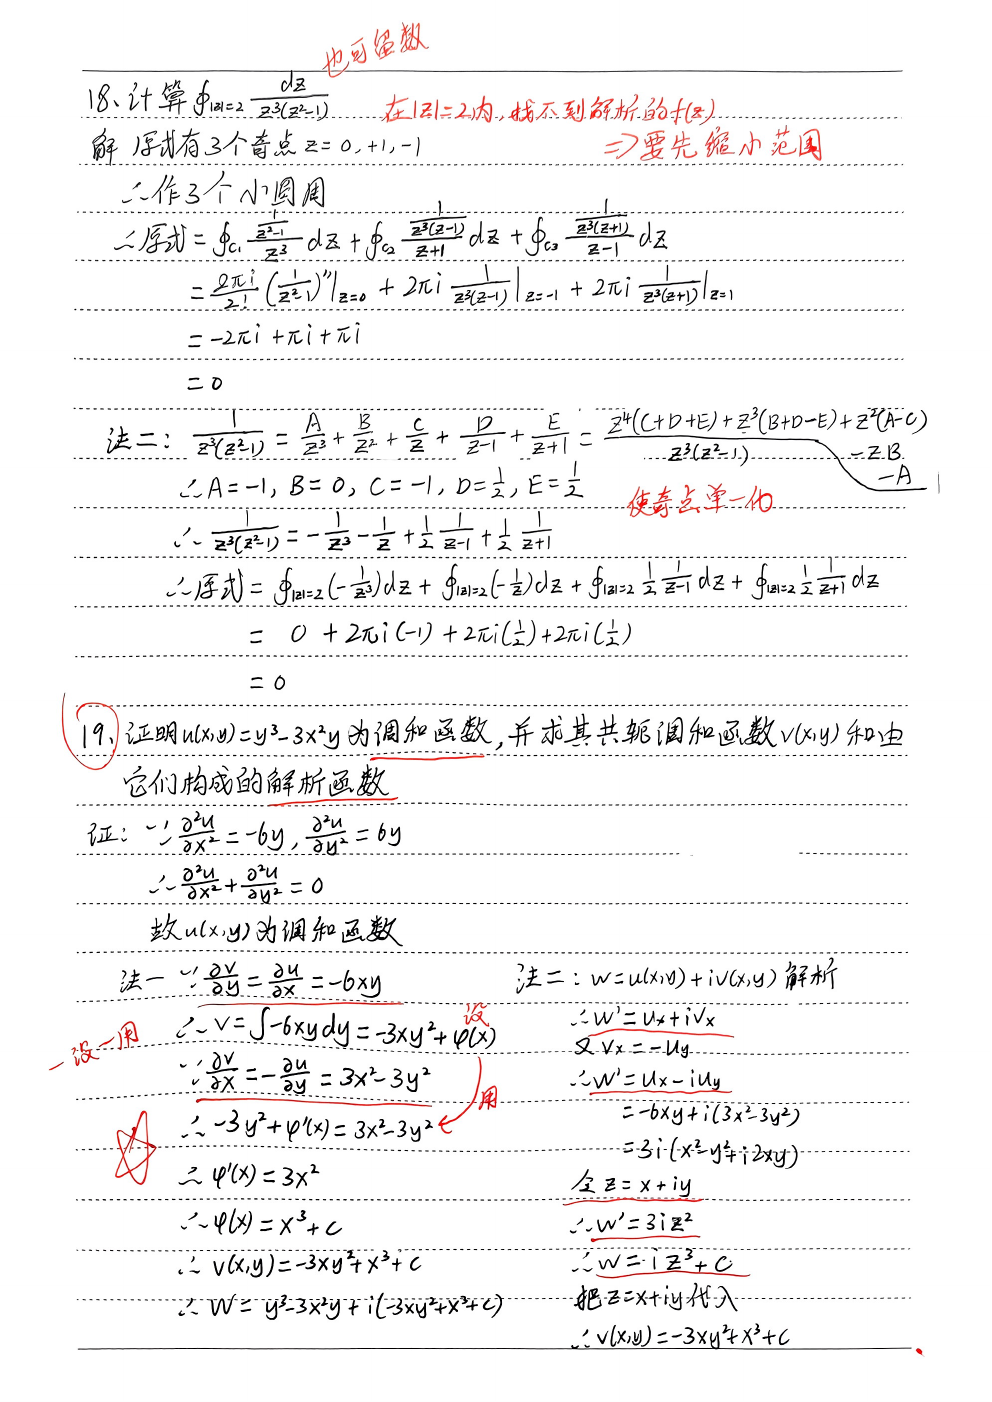 也可留数
18、计算∮|z|=2 dz/z³(z²-1)
在|z|=2内,找不到解析的f(z)
解 原式有3个奇点 z=0,+1,-1
⇒要先缩小范围
∴作3个小圆周
∴原式=∮c₁ (1/(z²-1))/z³ dz+∮c₂ (1/(z³(z-1)))/(z+1) dz+∮c₃ (1/(z³(z+1)))/(z-1) dz
=2πi/2! (1/(z²-1))''|z=0 + 2πi 1/(z³(z-1))|z=-1 + 2πi 1/(z³(z+1))|z=1
=-2πi+πi+πi
=0
法二: 1/(z³(z²-1)) = A/z³+B/z²+C/z+D/(z-1)+E/(z+1) = (z⁴(C+D+E)+z³(B+D-E)+z²(A-C)-zB-A)/(z³(z²-1))
∴A=-1, B=0, C=-1, D=1/2, E=1/2
使奇点单一化
∴ 1/(z³(z²-1)) = -1/z³-1/z+1/2 1/(z-1)+1/2 1/(z+1)
∴原式=∮|z|=2(-1/z³)dz+∮|z|=2(-1/z)dz+∮|z|=2 1/2 1/(z-1) dz+∮|z|=2 1/2 1/(z+1) dz
= 0+2πi(-1)+2πi(1/2)+2πi(1/2)
=0
19、证明u(x,y)=y³-3x²y为调和函数,并求其共轭调和函数v(x,y)和由
它们构成的解析函数
证: ∵ ∂²u/∂x²=-6y, ∂²u/∂y²=6y
∴ ∂²u/∂x²+∂²u/∂y²=0
故u(x,y)为调和函数
法一 ∵ ∂v/∂y=∂u/∂x=-6xy
∴V=∫-6xydy=-3xy²+φ(x)
设
一设一用
∵ ∂v/∂x=-∂u/∂y=3x²-3y²
用
∴-3y²+φ'(x)=3x²-3y²
∴φ'(x)=3x²
∴φ(x)=x³+c
∴v(x,y)=-3xy²+x³+c
∴W=y³-3x²y+i(-3xy²+x³+c)
法二:w=u(x,y)+iv(x,y)解析
∴w'=ux+iVx
又Vx=-Uy
∴w'=Ux-iUy
=-6xy+i(3x²-3y²)
=3i(x²-y²+i2xy)
令z=x+iy
∴w'=3iz²
∴w=iz³+c
把z=x+iy代入
∴v(x,y)=-3xy²+x³+c